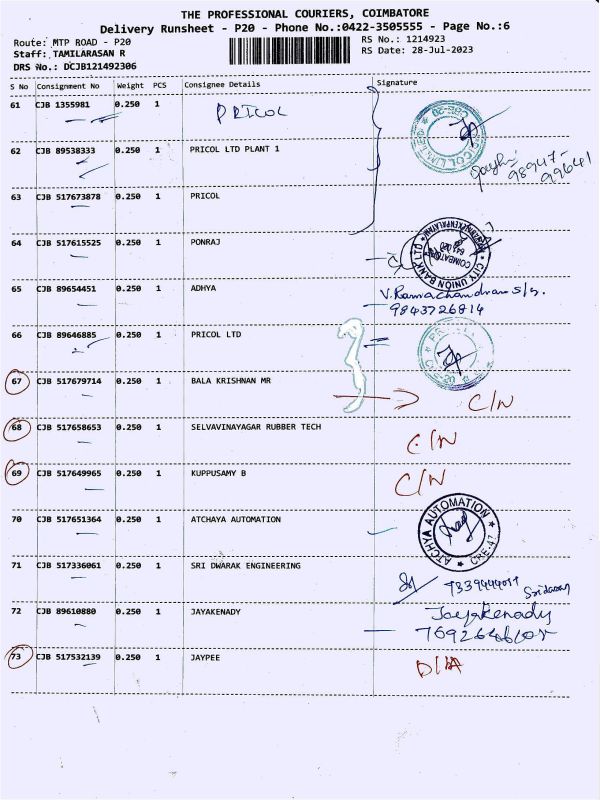 THE PROFESSIONAL COURIERS, COIMBATORE
Delivery Runsheet - P20 - Phone No.:0422-3505555 - Page No.:6
Route: MTP ROAD - P20
RS No.: 1214923
Staff: TAMILARASAN R
RS Date: 28-Jul-2023
DRS No.: DCJB121492306
S No Consignment No Weight PCS Consignee Details Signature
61 CJB 1355981 0.250 1 PRICOL
62 CJB 89538333 0.250 1 PRICOL LTD PLANT 1
98947-
99641
63 CJB 517673878 0.250 1 PRICOL
64 CJB 517615525 0.250 1 PONRAJ
CITY UNION BANK LTD
COIMBATORE
65 CJB 89654451 0.250 1 ADHYA V. Ramachandran
9843726814
66 CJB 89646885 0.250 1 PRICOL LTD
67 CJB 517679714 0.250 1 BALA KRISHNAN MR C/N
68 CJB 517658653 0.250 1 SELVAVINAYAGAR RUBBER TECH C/N
69 CJB 517649965 0.250 1 KUPPUSAMY B C/N
70 CJB 517651364 0.250 1 ATCHAYA AUTOMATION
ATCHYA AUTOMATION
CBE-47
71 CJB 517336061 0.250 1 SRI DWARAK ENGINEERING
72 CJB 89610880 0.250 1 JAYAKENADY Jayakenady
73 CJB 517532139 0.250 1 JAYPEE D/A